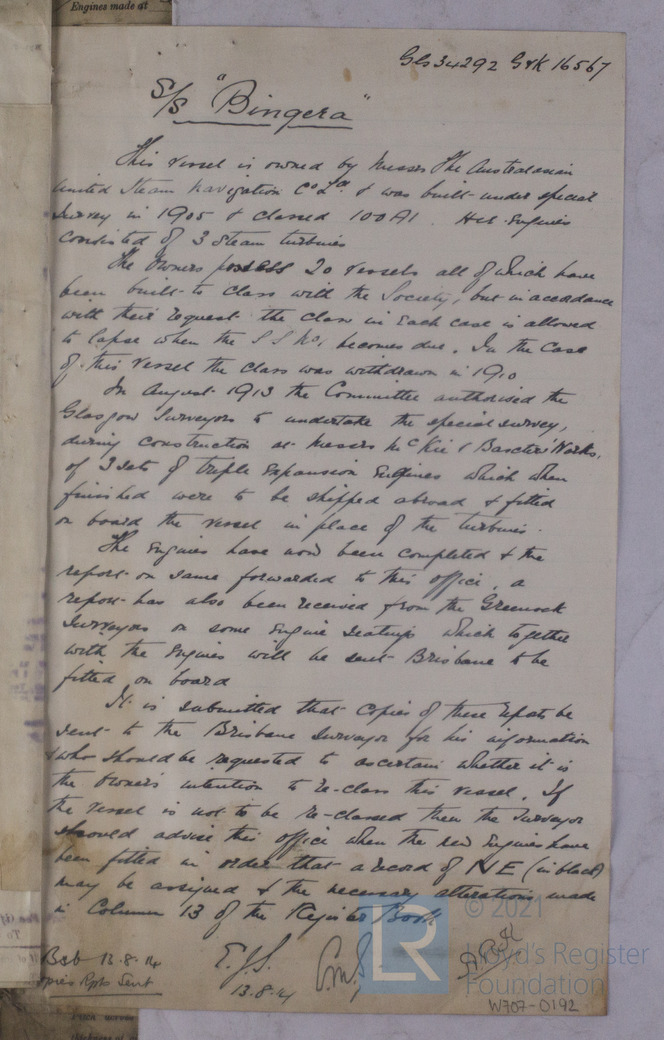 Engines made at
Gls 34292 Grk 16567
S/S "Bingera"
This vessel is owned by Messrs The Australasian
United Steam Navigation Co Ld & was built under special
Survey in 1905 & classed 100A1. Her Engines
consisted of 3 Steam turbines
The Owners possess 20 vessels all of which have
been built to class with the Society, but in accordance
with their request the class in each case is allowed
to lapse when the S S No 1 becomes due. In the case
of this vessel the class was withdrawn in 1910
In August 1913 the Committee authorised the
Glasgow Surveyors to undertake the special survey,
during construction at Messrs McKie & Baxter's Works,
of 3 sets of triple Expansion Engines which when
finished were to be shipped abroad & fitted
on board the vessel in place of the turbines.
The Engines have now been completed & the
report on same forwarded to this office, a
report has also been received from the Greenock
Surveyors on some Engine Seatings which together
with the Engines will be sent Brisbane to be
fitted on board
It is submitted that copies of these reports be
sent to the Brisbane Surveyor for his information
& who should be requested to ascertain whether it is
the Owner's intention to re-class this vessel. If
the vessel is not to be re-classed then the Surveyor
should advise this office when the new Engines have
been fitted in order that a record of NE (in black)
may be assigned & the necessary alterations made
in Column 13 of the Register Book
© 2021
Lloyd's Register
Foundation
LR
Bsb 13.8.14
Copies Rpts Sent
E.J.S.
13.8.14
W707-0192